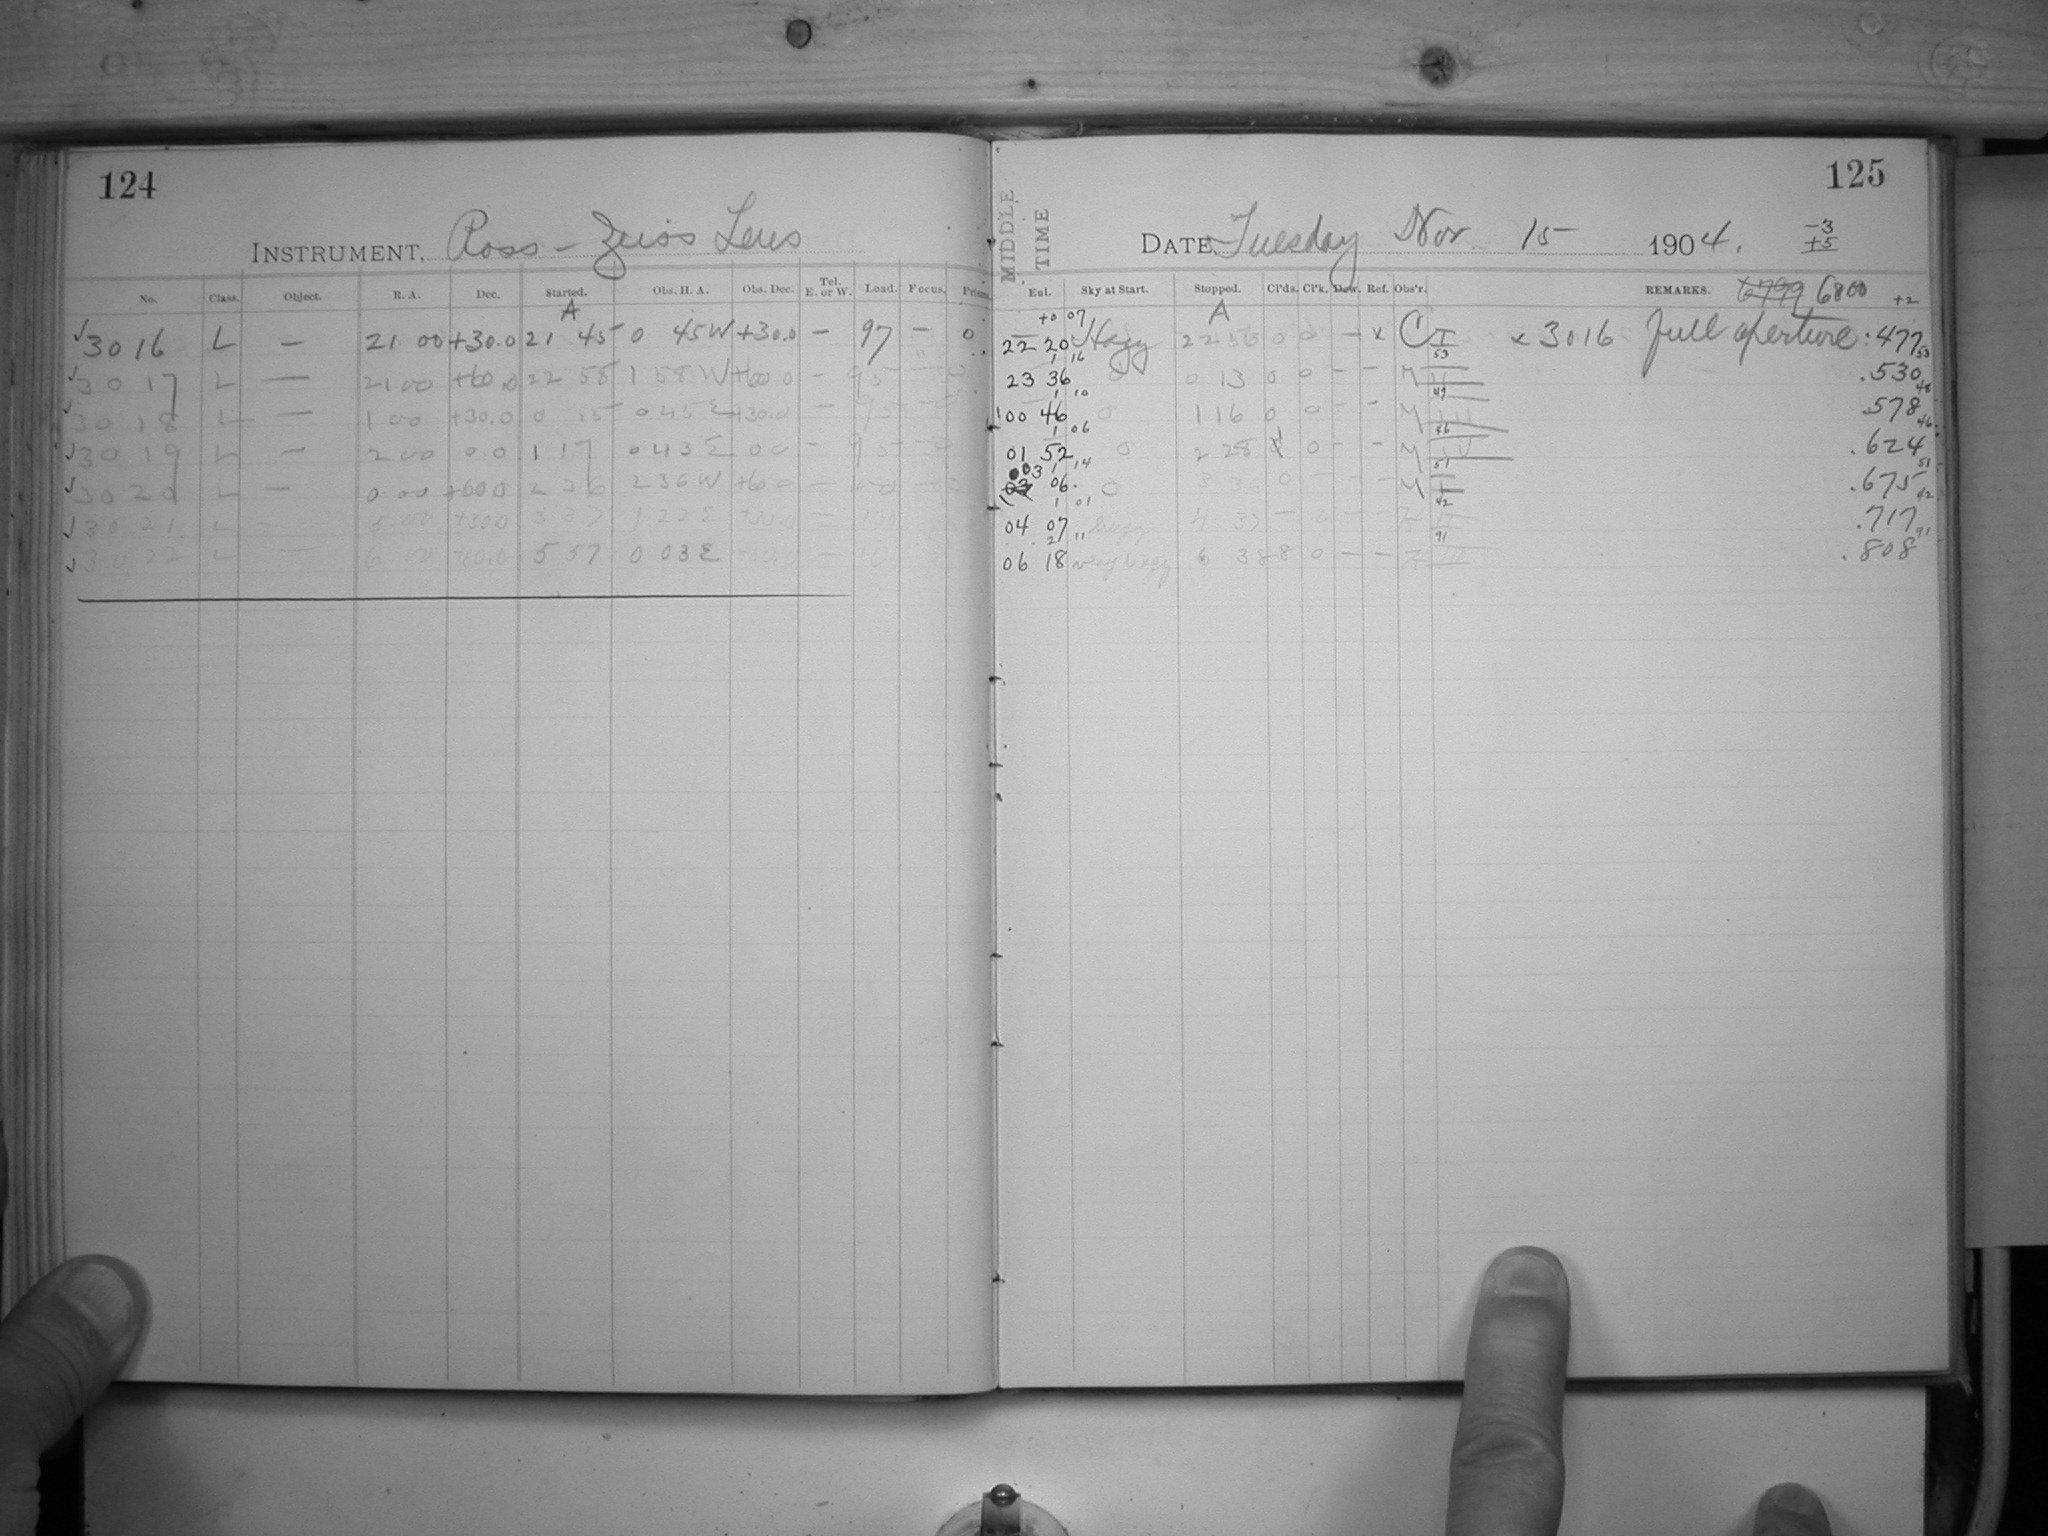 124
INSTRUMENT, Ross - Zeiss Lens
No. Class. Object. R. A. Dec. Started. Obs. H. A. Obs. Dec. Tel. E. or W. Load. Focus. Prism.
A
✓ 3016 L — 21 00 +30.0 21 45 0 45 W +30.0 — 97 — 0
✓ 3017 L — 21 00 +60.0 22 58 1 58 W +60.0 — 95
✓ 3018 L — 1 00 +30.0 0 15 0 45 E +30.0 — 95
✓ 3019 L — 2 00 0.0 1 17 0 43 E 0 0 — 95 — 0
✓ 3020 L — 0 00 +60.0 2 36 2 36 W +60.0 —
✓ 3021 L — 5 00 +30.0 3 37 1 22 E —
✓ 3022 L — 6 00 +60.0 5 57 0 03 E —
125
MIDDLE TIME
DATE, Tuesday Nov 15 1904.
-3
+5
Eul. Sky at Start. Stopped. Cl'ds. Cl'k. Dew. Ref. Obs'r. REMARKS. 6799 6800 +2
+0 07 A
22 20 Hazy 22 56 0 0 — x C I x 3016 full aperture .477
1 16 53 53
23 36 0 0 13 0 0 — — M .530
1 10 49 48
00 46 0 1 16 0 0 — — M .578
1 06 46 46
01 52 0 2 28 0 — — M .624
1 14 51 51
03 06 0 3 36 0 M .675
1 01 42 42
04 07 hazy 4 37 — 0 .717
27 91 91
06 18 very hazy 6 38 8 0 — — .808